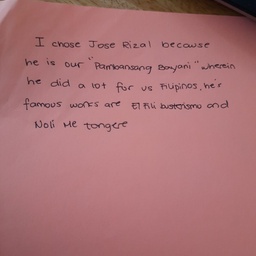 I chose Jose Rizal because
he is our "Pambansang Bayani" wherein
he did a lot for us Filipinos, he's
famous works are El Fili busterismo and
Noli Me tangere